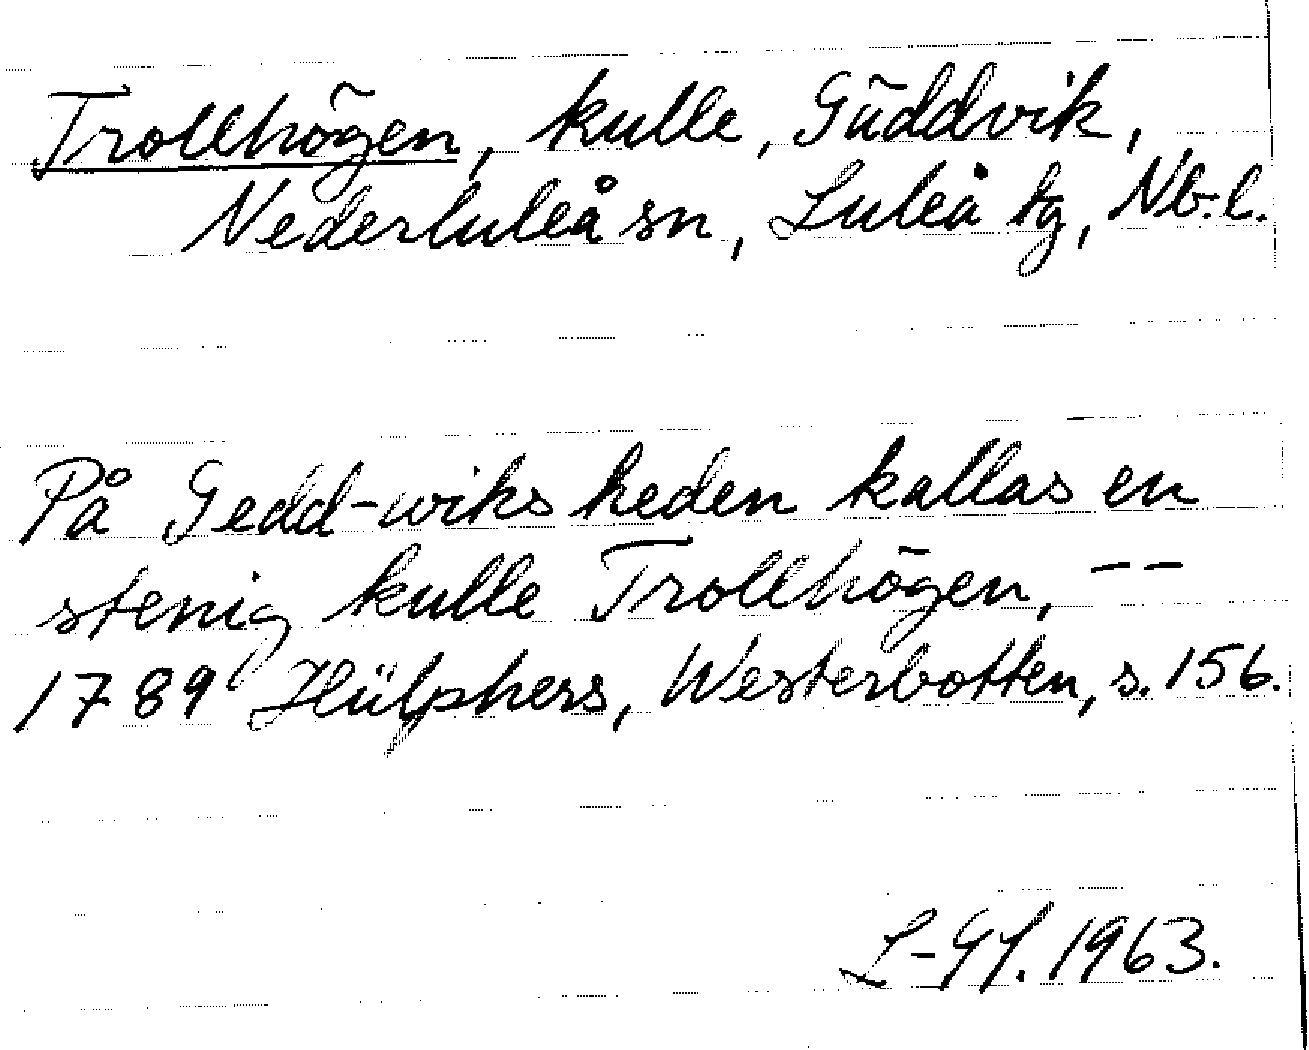 Trollhögen, kulle, Gäddvik,
Nederluleå sn, Luleå tg, Nb. l.
På Gedd-wiks heden kallas en
stenig kulle Trollhögen, --
1789 Hülphers, Westerbotten, s. 156.
L-GL. 1963.